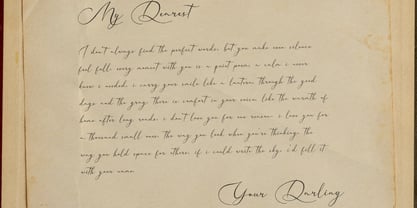 My Dearest
I don't always find the perfect words, but you make even silence
feel full. every moment with you is a quiet poem, a calm i never
knew i needed. i carry your smile like a lantern through the good
days and the gray. there is comfort in your voice, like the warmth of
home after long roads. i don't love you for one reason. i love you for
a thousand small ones. the way you look when you're thinking. the
way you hold space for others. if i could write the sky, i'd fill it
with your name.
Your Darling